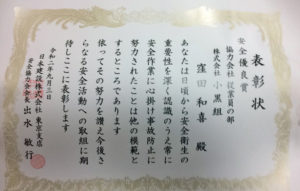 表彰状
安全優良賞
協力会社 従業員の部
株式会社 小黒組
窪田和喜 殿
あなたは日頃から安全衛生の
重要性を深く認識のうえ常に
安全作業に心掛け事故防止に
努力されたことは他の模範と
するところであります
依ってその努力を讃え今後さ
らなる安全活動への取組に期
待しここに表彰します
令和二年九月三日
日本建設株式会社 東京支店
安全協力会会長 出水 敏行